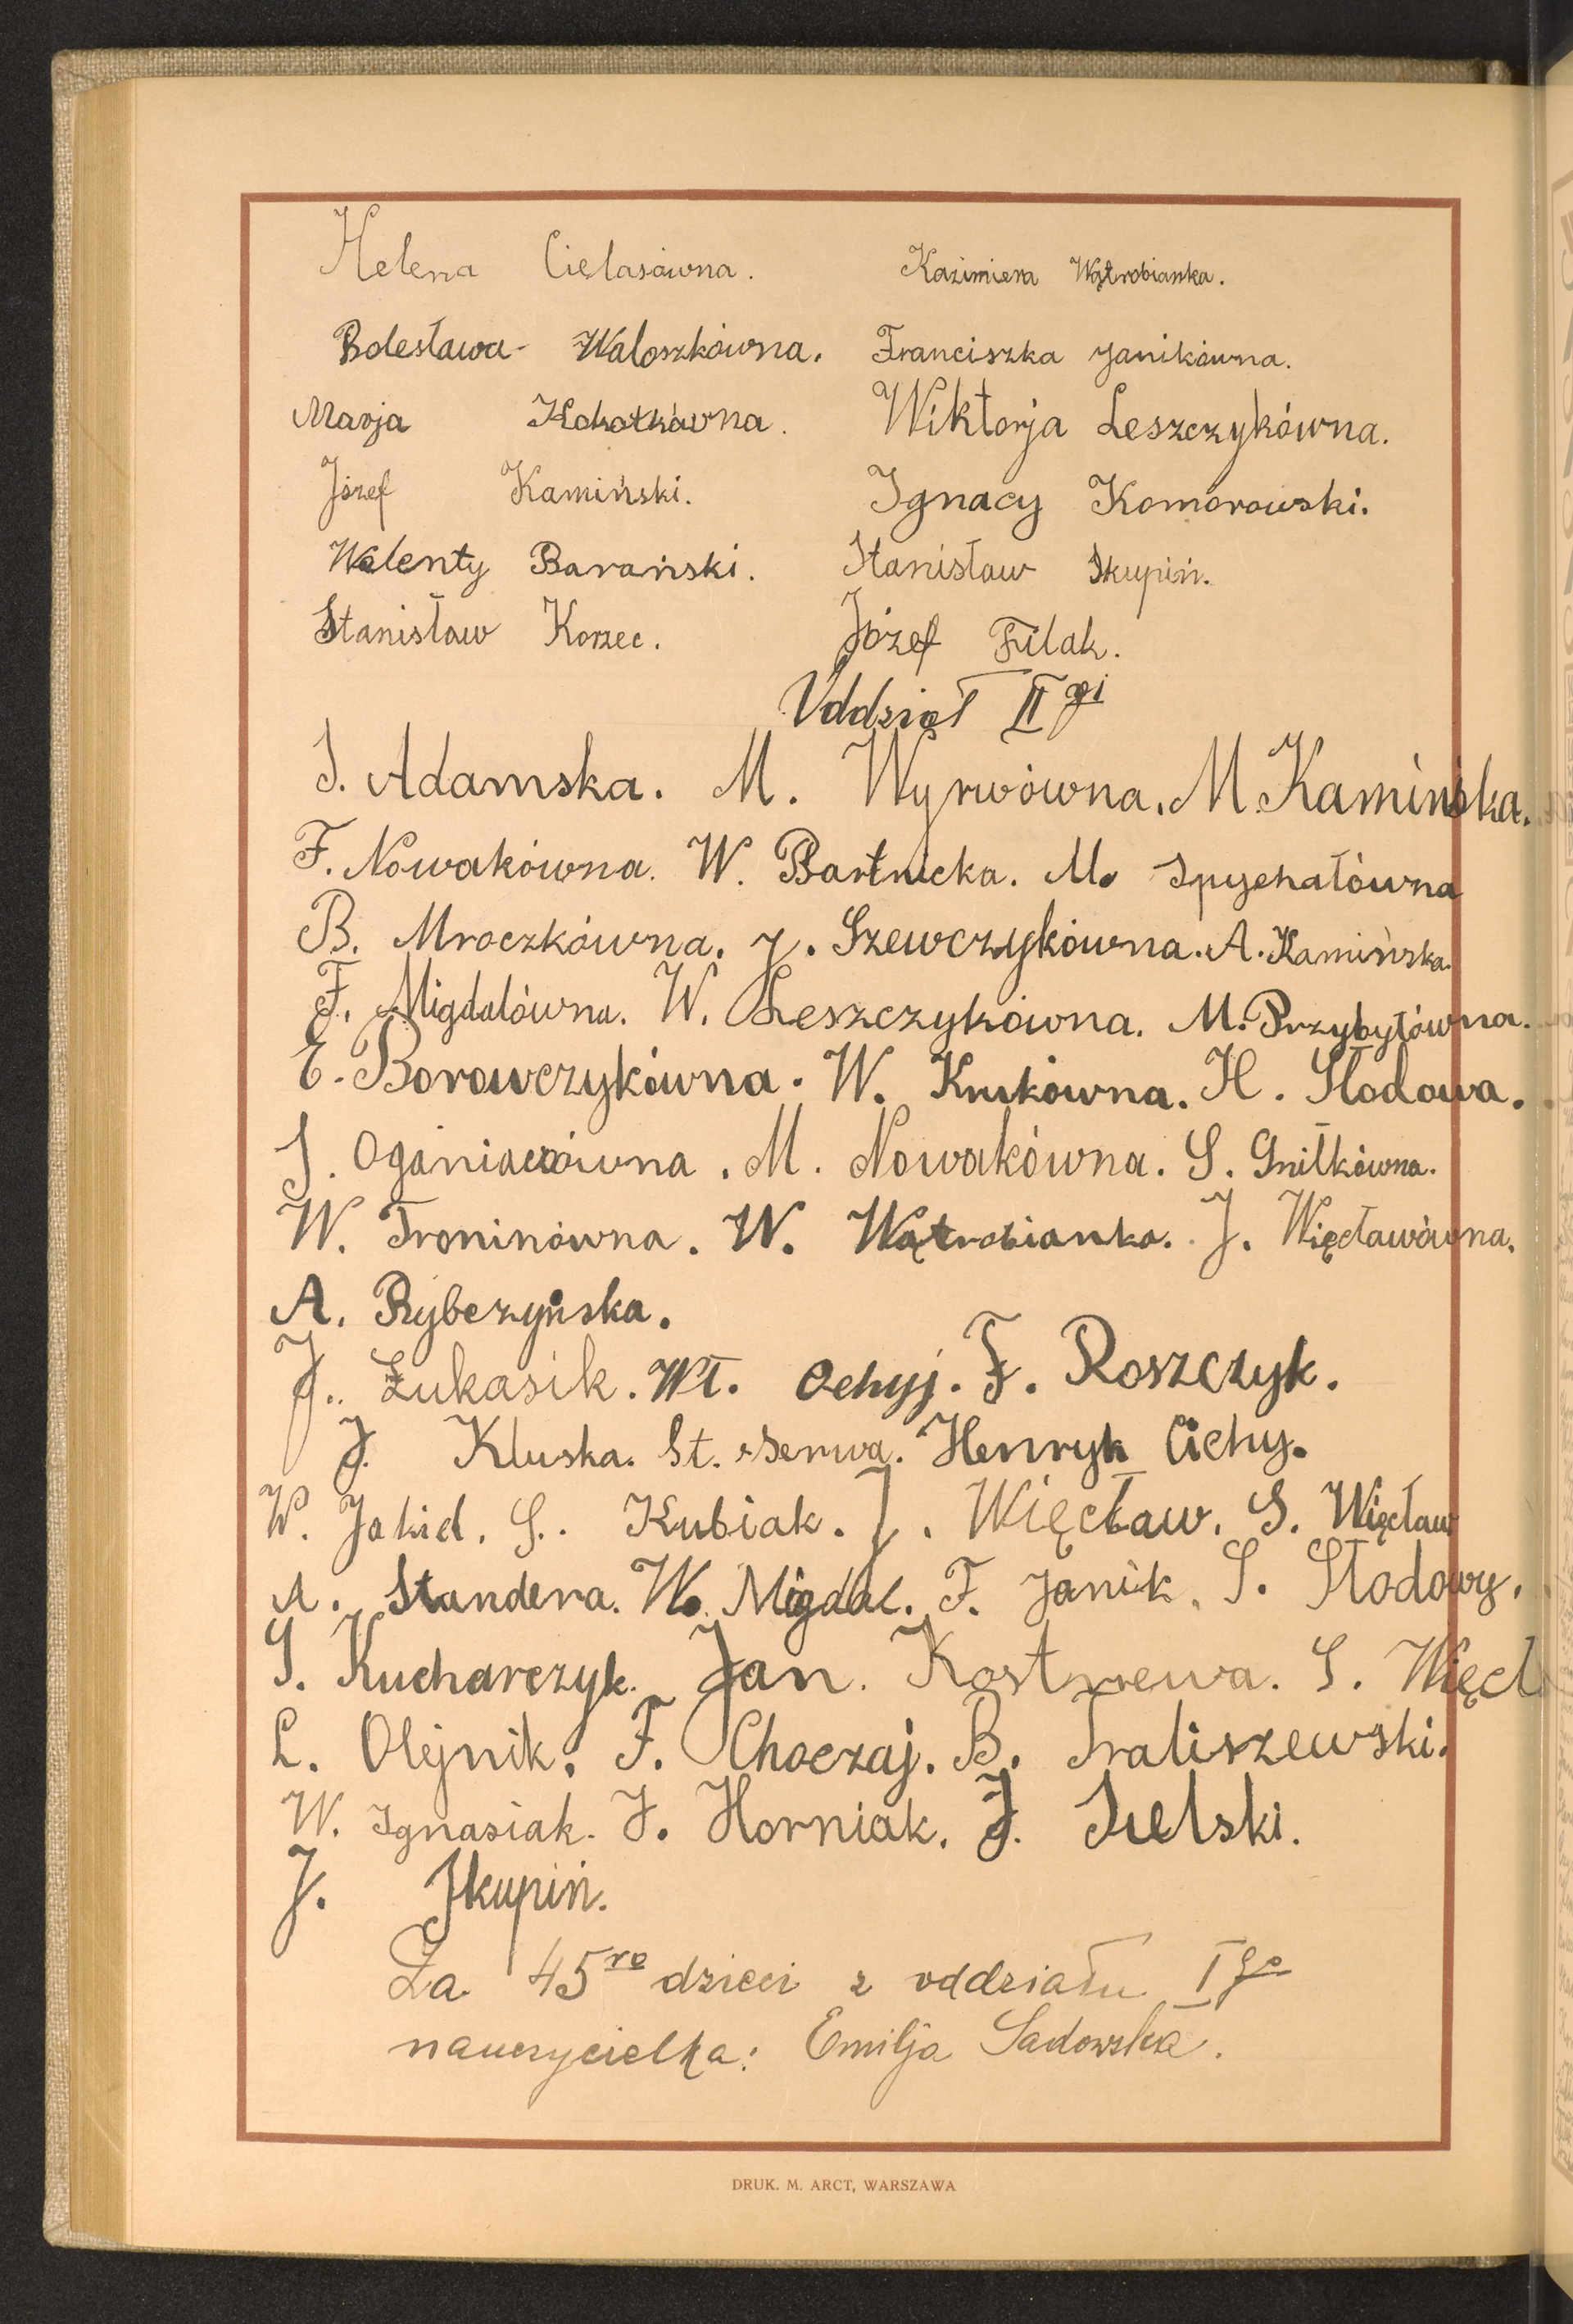 Helena Cielasówna. Kazimiera Wątrobianka.
Bolesława Waloszkówna. Franciszka Janikówna.
Marja Kokotkówna. Wiktorja Leszczykówna.
Józef Kamiński. Ignacy Komorowski.
Walenty Barański. Stanisław Skupiń.
Stanisław Korzec. Józef Filak.
Oddział II gi
S. Adamska. M. Wyrwówna. M. Kamińska.
F. Nowakówna. W. Bartnicka. M. Spychałówna
B. Mroczkówna. J. Szewczykówna. A. Kamińska.
F. Migdalówna. W. Leszczykówna. M. Przybyłówna.
E. Borowczykówna. W. Krukówna. H. Słodowa.
J. M. Nowakówna. S. Gniłkówna.
W. Troninówna. W. Wątrobianka. J. Więcławówna.
A. Rybczyńska.
J. Łukasik. Wł. Ochyj. F. Roszczyk.
J. Kluska. St. Serwa. Henryk Cichy.
W. Jakiel. S. Kubiak. J. Więcław. S. Więcław
A. Standera. W. Migdal. F. Janik. S. Słodowy.
S. Kucharczyk. Jan. Kostrzewa. S. Więcł
L. Olejnik. F. Choczaj. B. Traliszewski.
W. Ignasiak. J. Horniak. J. Sielski.
J. Skupiń.
Za 45ro dzieci z oddziału I go
nauczycielka: Emilja Sadowska.
DRUK. M. ARCT, WARSZAWA